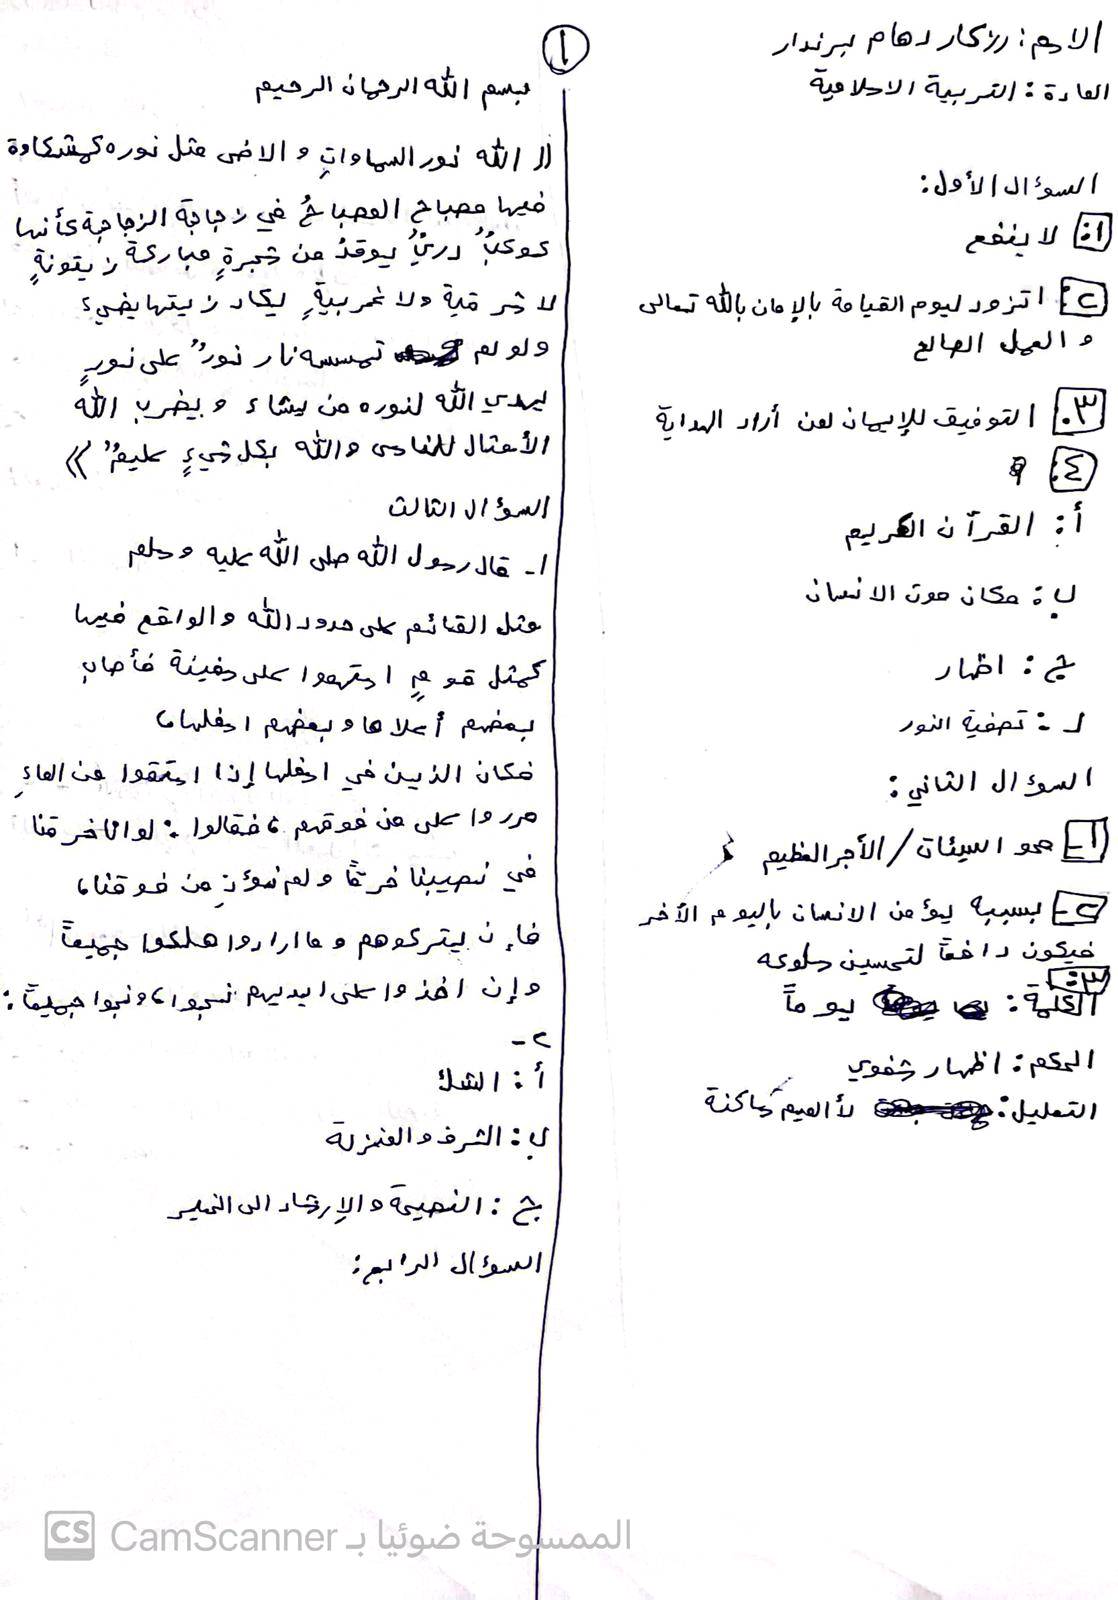 الاسم: رزكار دهام بريندار
المادة: التربية الاسلامية
السؤال الأول:
١: لا ينفع
٢: اتزود ليوم القيامة بالإمان بالله تعالى
و العمل الصالح
٣. التوفيق للإيمان لمن أراد الهداية
٤:
أ: القرآن الكريم
ب: مكان موت الانسان
ج: اظهار
د: تصفية النور
السؤال الثاني:
١- محو السيئات / الأجر العظيم
٢- بسببه يؤمن الانسان باليوم الأخر
فيكون دافعاً لتحسين سلوكه
٣:
الكلمة: يوماً
الحكم: اظهار شفوي
التعليل: لأ الميم ساكنة
١
بسم الله الرحمان الرحيم
(( الله نور السماواتِ و الاضى مثل نوره كمشكاوة
فيها مصباح المصباحُ في زجاجة الزجاجة كأنها
كوكبٌ دريٌ يوقدُ من شجرةٍ مباركة زيتونةٍ
لا شرقية ولا غربيةٍ يكاد زيتها يضيء
ولو لم تمسسه نار نورٌ على نورٍ
يهدي الله لنوره من يشاء و يضرب الله
الأمثال للناس و الله بكل شيءٍ عليمٌ ))
السؤال الثالث
١- قال رسول الله صلى الله عليه وسلم
مثل القائم على حدود الله والواقع فيها
كمثل قومٍ استهموا على سفينة فأصاب
بعضهم أعلاها وبعضهم اسفلها،
فكان الذين في اسفلها إذا استقوا من الماءِ
مرروا على من فوقهم، فقالوا: لو انا خرقنا
في نصيبنا خرقاً ولم نؤذِ من فوقنا،
فإن يتركوهم و ما ارادوا هلكوا جميعاً
وإن اخذوا على ايديهم نجوا، ونجوا جميعاً:
٢-
أ: الشك
ب: الشرف والمنزلة
ج: النصيحة والإرشاد الى الخير
السؤال الرابع:
CS CamScanner الممسوحة ضوئيا بـ